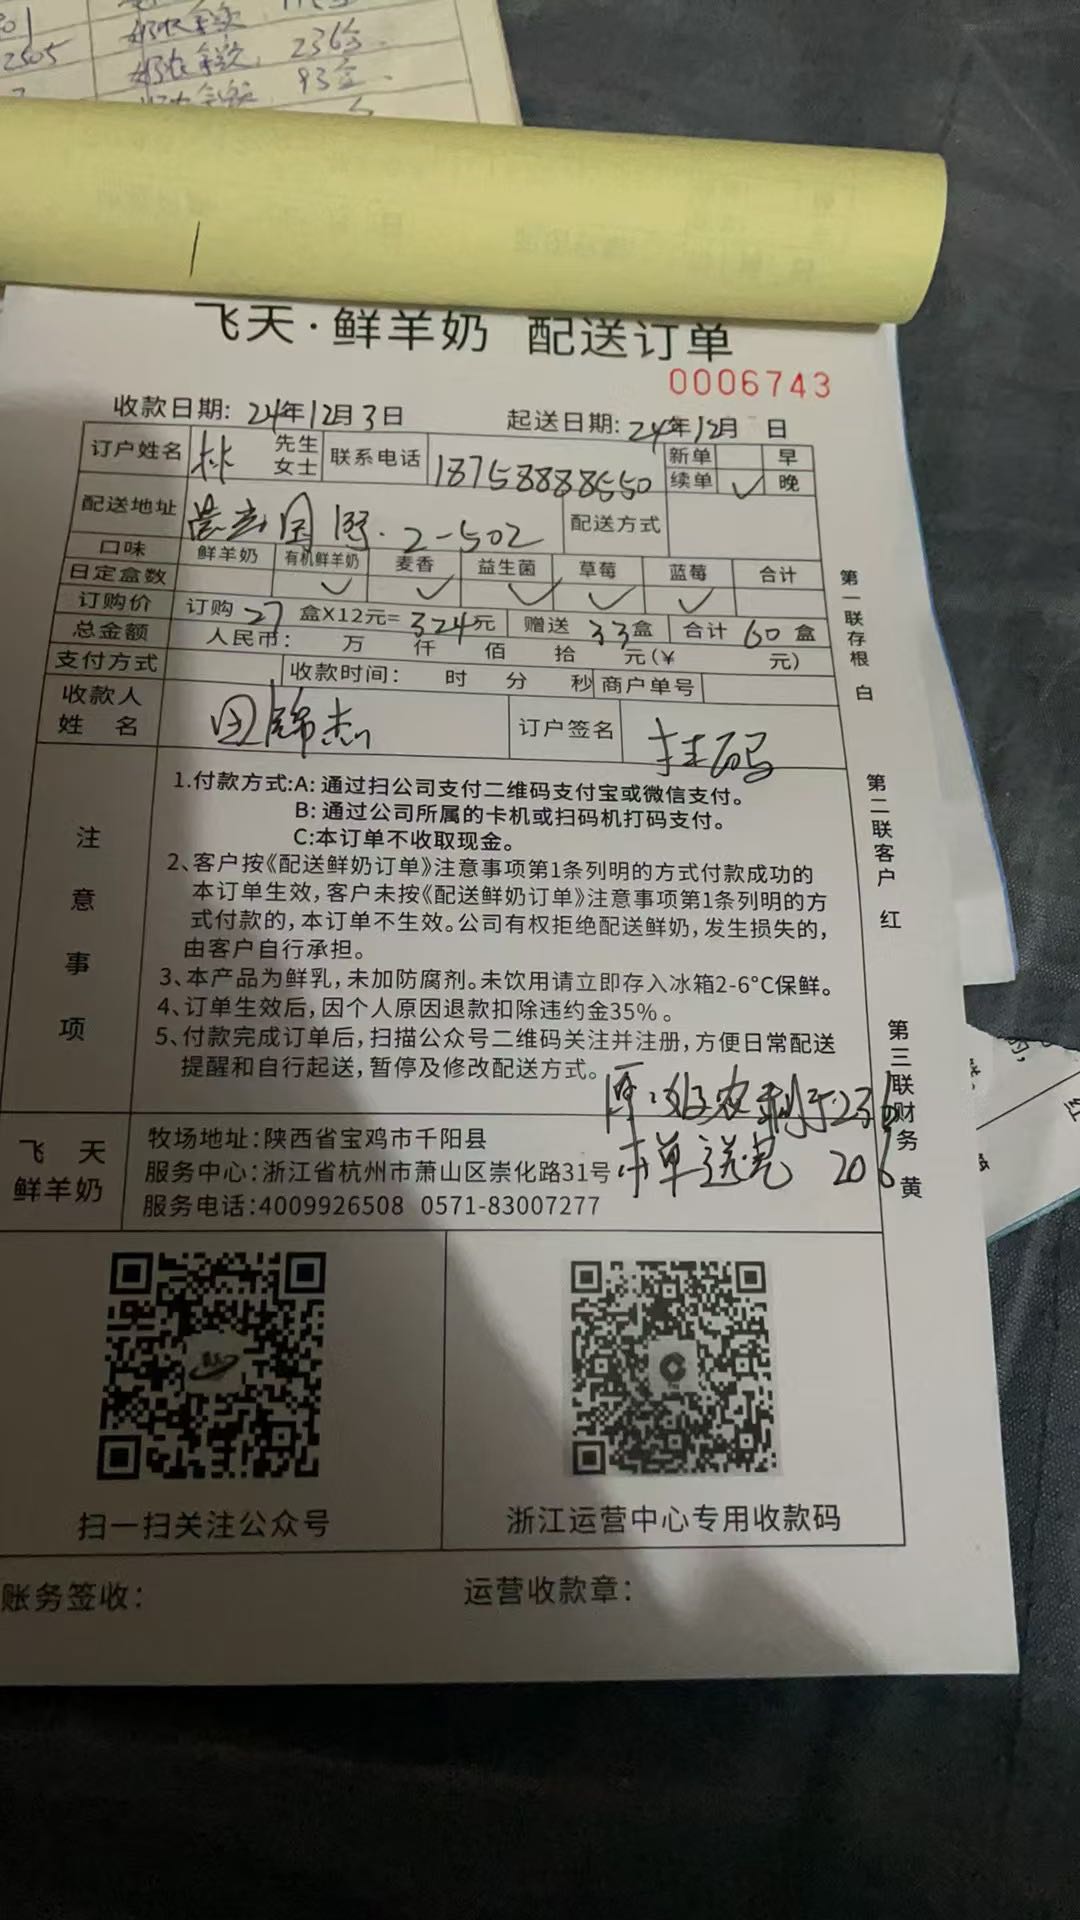 2505
236盒.
93盒.
飞天·鲜羊奶 配送订单
0006743
收款日期: 24年12月3日 起送日期: 24年12月 日
订户姓名 林 先生 女士 联系电话 18758888550 新单 早
续单 ✓ 晚
配送地址 2-502 配送方式
口味 鲜羊奶 有机鲜羊奶 麦香 益生菌 草莓 蓝莓 合计
日定盒数 ✓ ✓ ✓ ✓ ✓
订购价 订购 27 盒X12元= 324元 赠送 33盒 合计 60 盒
总金额 人民币: 万 仟 佰 拾 元(¥ 元)
支付方式 收款时间: 时 分 秒 商户单号
收款人
姓 名 田锦杰 订户签名 扫码
注意事项
1.付款方式:A: 通过扫公司支付二维码支付宝或微信支付。
B: 通过公司所属的卡机或扫码机打码支付。
C:本订单不收取现金。
2、客户按《配送鲜奶订单》注意事项第1条列明的方式付款成功的
本订单生效,客户未按《配送鲜奶订单》注意事项第1条列明的方
式付款的,本订单不生效。公司有权拒绝配送鲜奶,发生损失的,
由客户自行承担。
3、本产品为鲜乳,未加防腐剂。未饮用请立即存入冰箱2-6°C保鲜。
4、订单生效后,因个人原因退款扣除违约金35%。
5、付款完成订单后,扫描公众号二维码关注并注册,方便日常配送
提醒和自行起送,暂停及修改配送方式。
236
单送完 206
飞 天
鲜羊奶
牧场地址:陕西省宝鸡市千阳县
服务中心:浙江省杭州市萧山区崇化路31号
服务电话:4009926508 0571-83007277
第一联存根 白
第二联客户 红
第三联财务 黄
扫一扫关注公众号
浙江运营中心专用收款码
账务签收:
运营收款章: